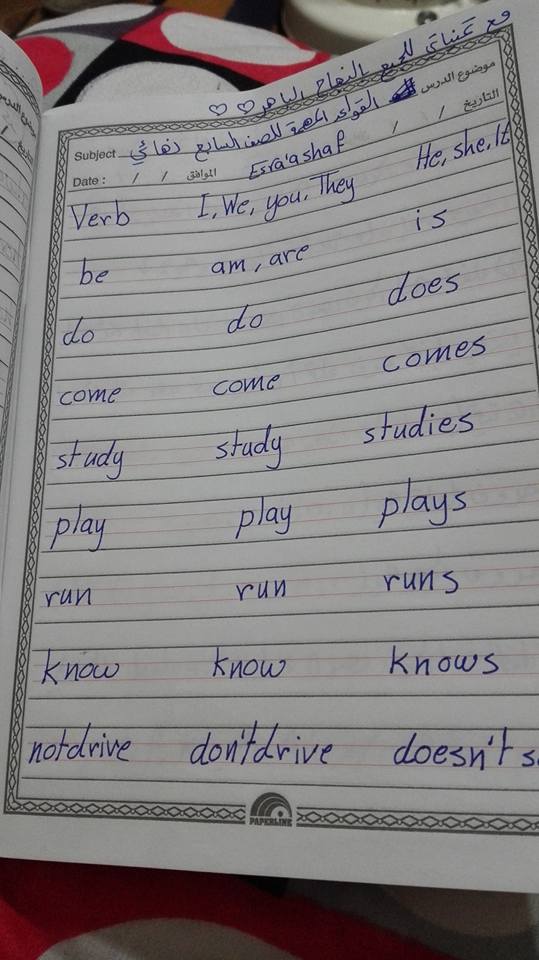 مع تمنياتي للجميع النجاح الباهر ♡ ♡
Subject القواعد المهمة للصف السابع نهائي موضوع الدرس
Date : / / الموافق Esra'a shaf / / التاريخ
Verb I, We, you, They He, she, It
be am, are is
do do does
come come comes
study study studies
play play plays
run run runs
know know knows
not drive don't drive doesn't
PAPERLINE